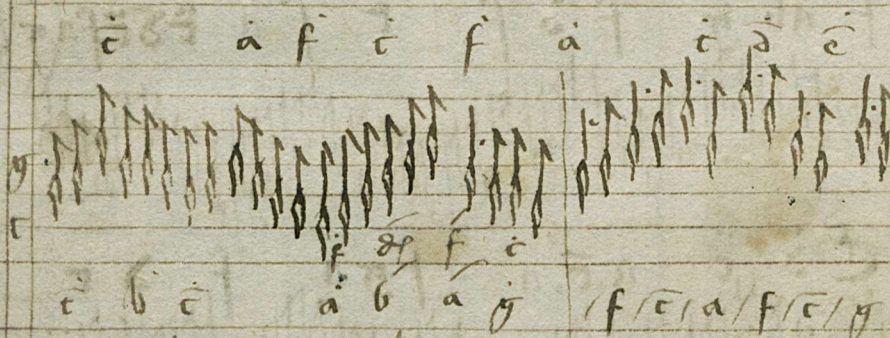 c̄ a f c f a c d̄ ē
g
c
f d f c
c b c a b a g / f / c̄ / a / f / c̄ / g